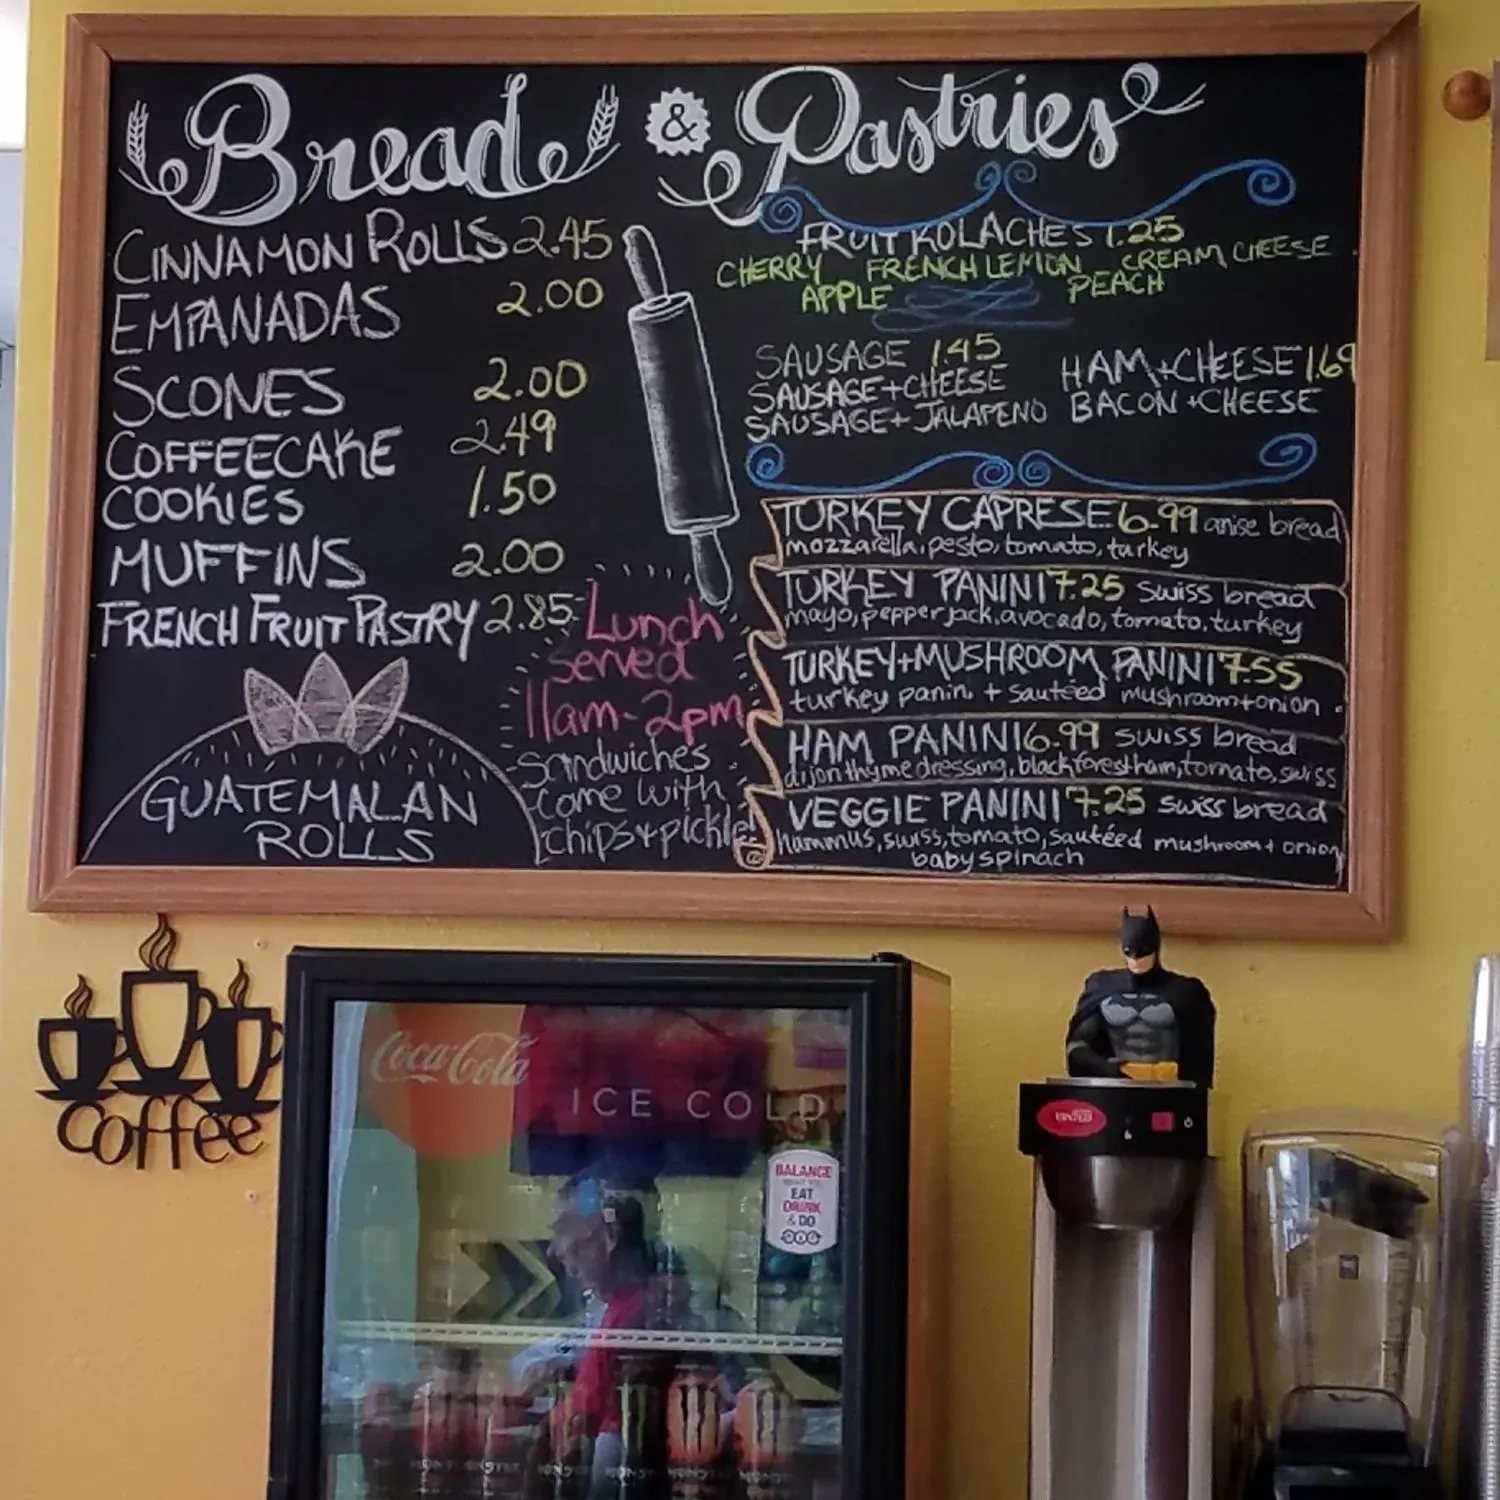 Bread & Pastries
CINNAMON ROLLS 2.45
EMPANADAS 2.00
SCONES 2.00
COFFEECAKE 2.49
COOKIES 1.50
MUFFINS 2.00
FRENCH FRUIT PASTRY 2.85
GUATEMALAN
ROLLS
Lunch
served
11am-2pm
sandwiches
come with
chips+pickle
FRUIT KOLACHES 1.25
CHERRY FRENCH LEMON CREAM CHEESE
APPLE PEACH
SAUSAGE 1.45
SAUSAGE+CHEESE
SAUSAGE+JALAPENO
HAM+CHEESE 1.69
BACON+CHEESE
TURKEY CAPRESE 6.99 anise bread
mozzarella, pesto, tomato, turkey
TURKEY PANINI 7.25 swiss bread
mayo, pepper jack, avocado, tomato, turkey
TURKEY+MUSHROOM PANINI 7.55
turkey panini + sautéed mushroom+onion
HAM PANINI 6.99 swiss bread
dijon thyme dressing, black forest ham, tomato, swiss
VEGGIE PANINI 7.25 swiss bread
hammus, swiss, tomato, sautéed mushroom + onion
baby spinach
coffee
Coca-Cola
ICE COLD
BALANCE
WHAT YOU
EAT
DRINK
& DO
MONSTER